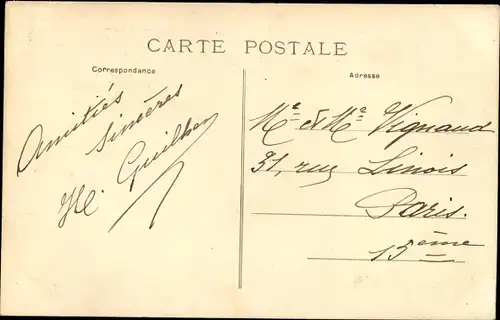 CARTE POSTALE
Correspondance
Amitiés
Sincères
Adresse
Me & Me Vignaud
31, rue Linois
Paris.
15ème